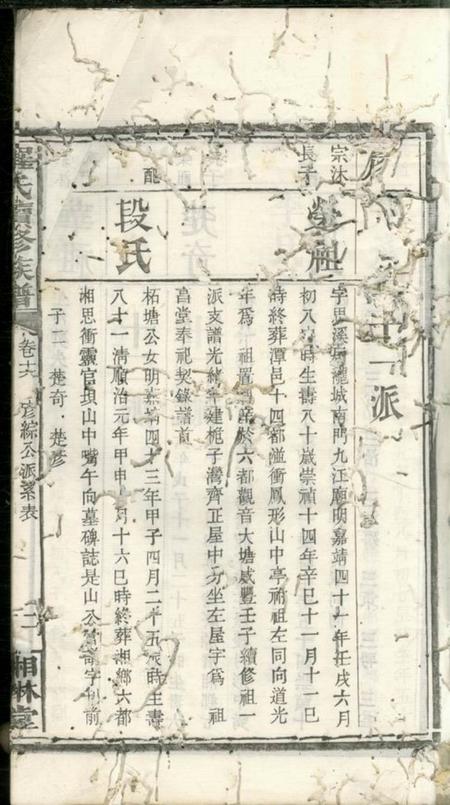 派
宗沐
長子
榮祖
字思溪居龍城南門九江廟明嘉靖四十一年壬戌六月
初八時生壽八十歲崇禎十四年辛巳十一月十一巳
時終葬潭邑十四都隘衝鳳形山中亭祔祖左同向道光
年為祖置於六都觀音大塘咸豐壬子續修祖一
派支譜光緒建梔子灣齊正屋中分坐左屋字為祖
昌堂奉祀契錄譜首
配
段氏
柘塘公女明嘉靖四十三年甲子四月二十五辰時生壽
八十一清順治元年甲申月十六巳時終葬湘鄉六都
相思衝靈官垻山中嘴午向墓碑誌是山公前
子二 楚奇 楚彥
氏續修族譜
卷十六 彥綜公派系表
湘林堂